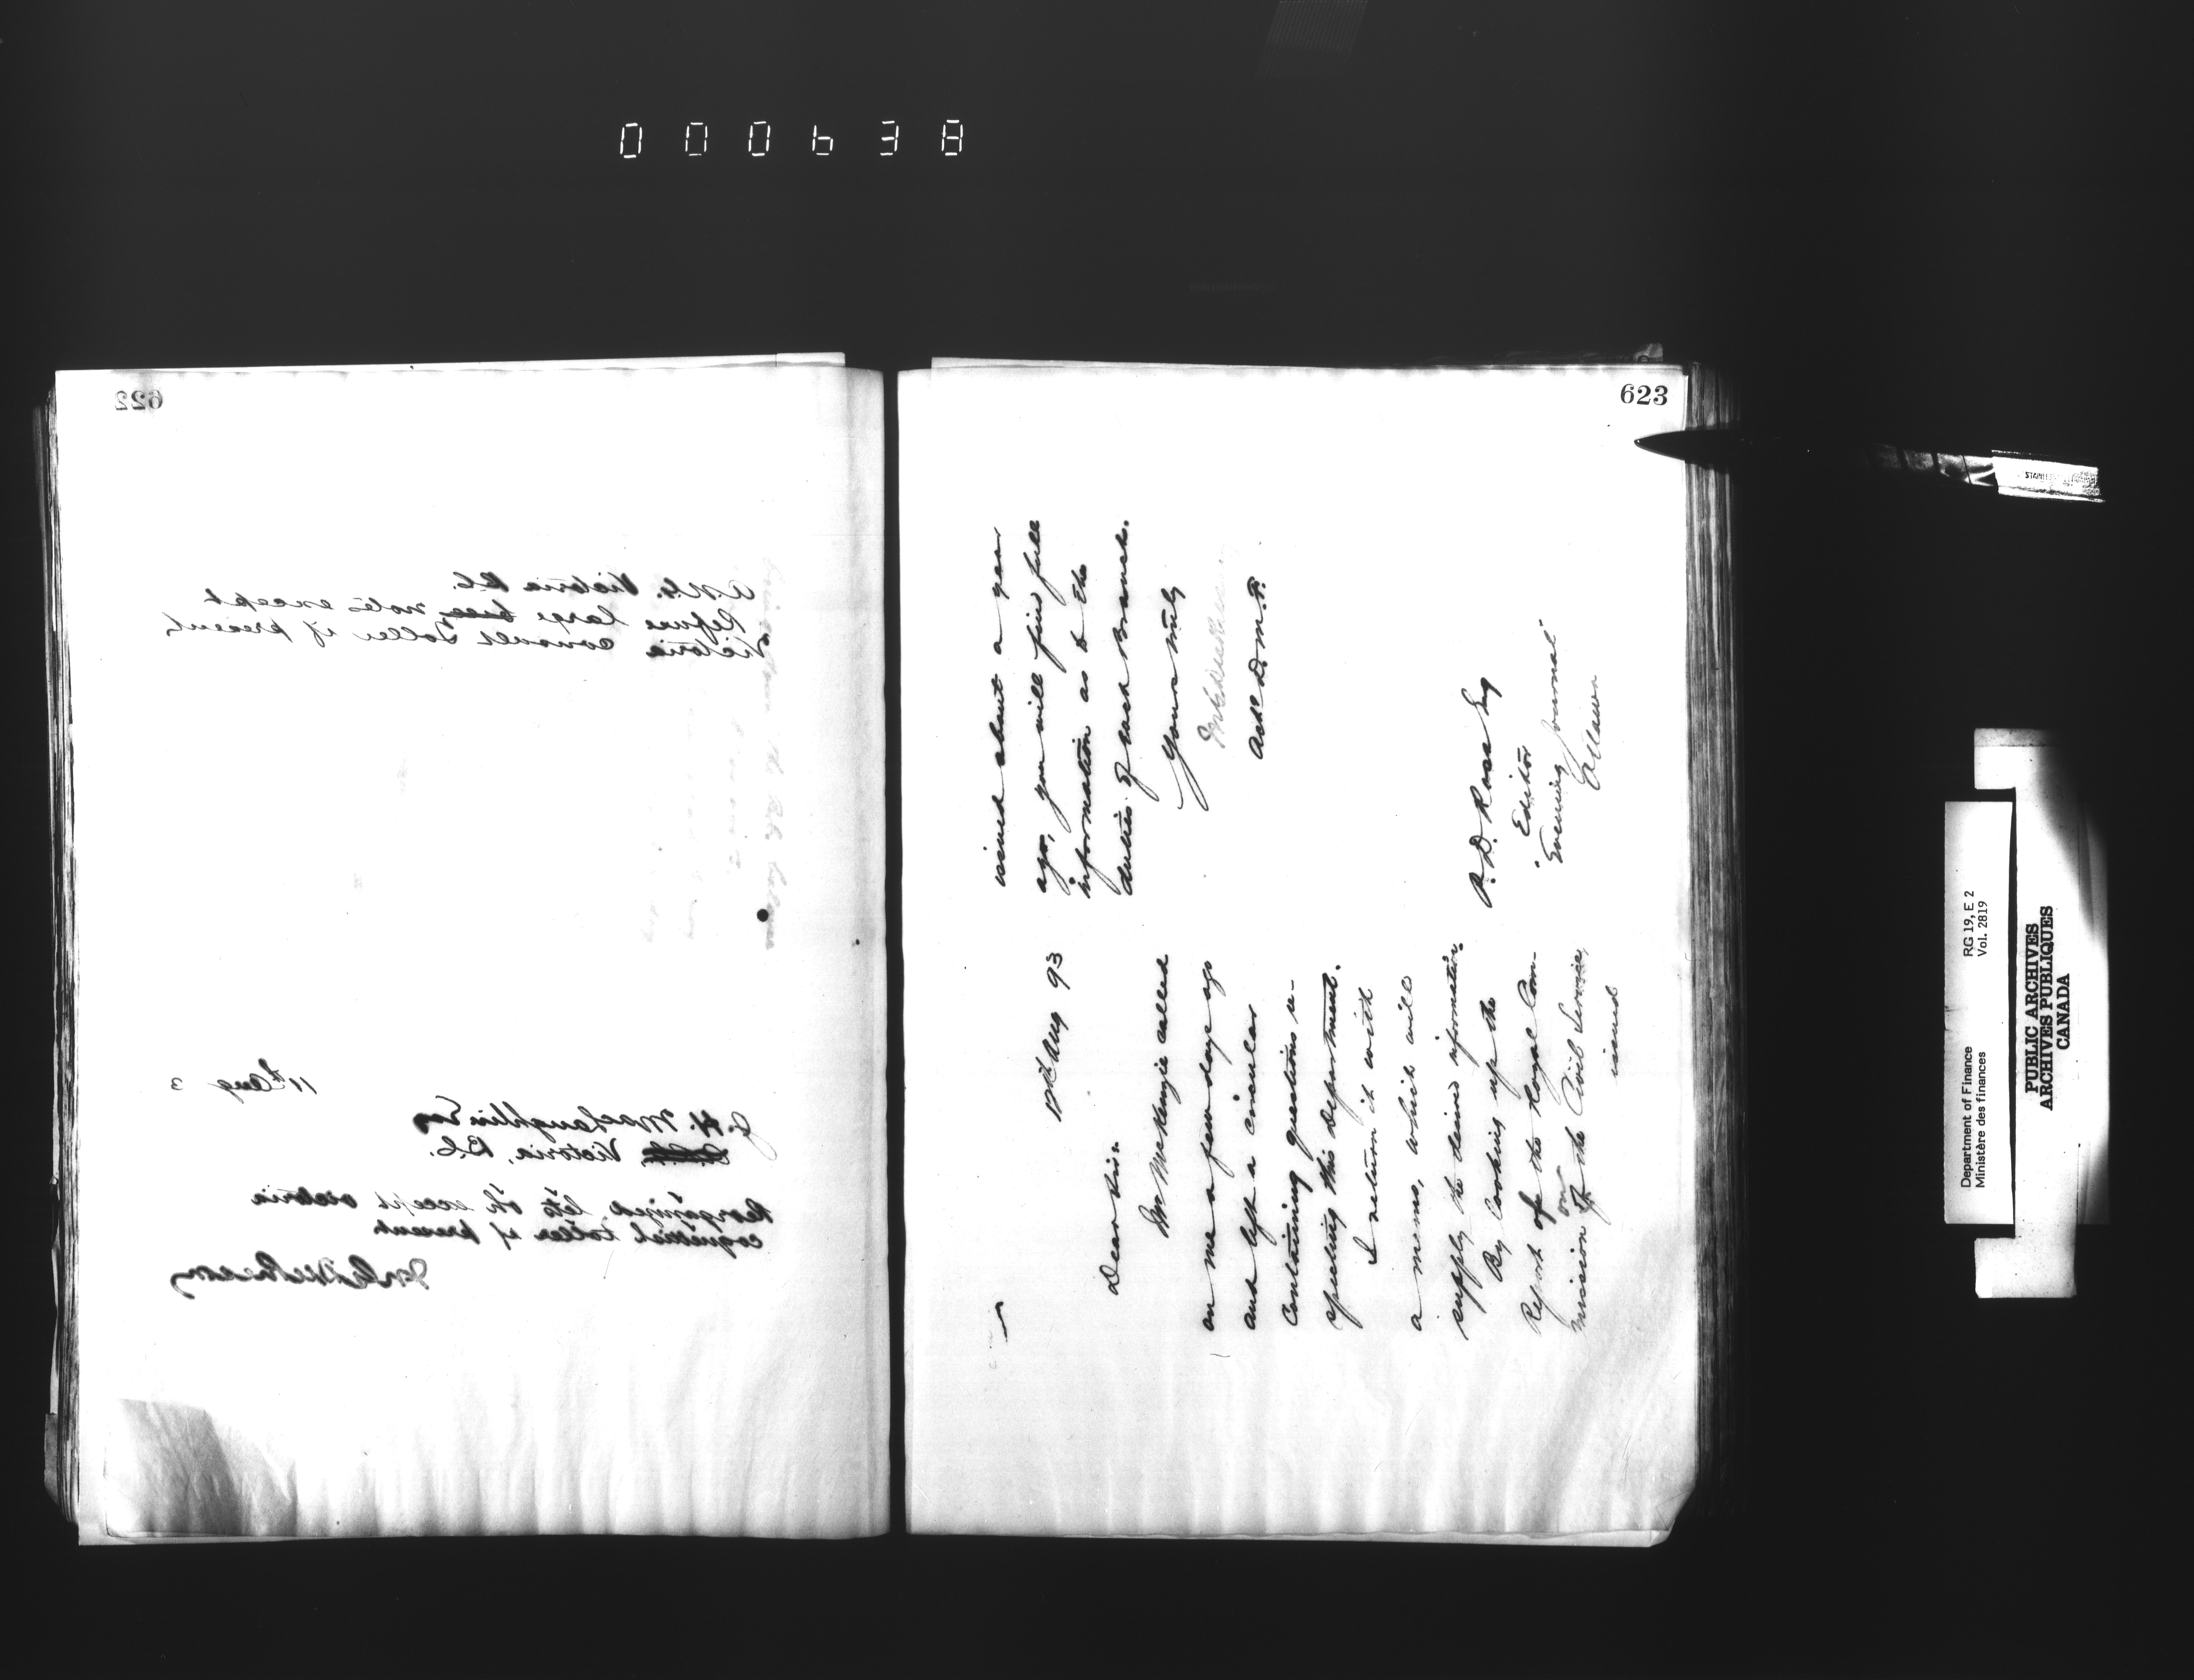 000638
622
J.N.G. Victoria B.C.
Refuse large notes except
Victoria consult Toller if present
11th Aug 3
J. H. MacLaughlin Esq
Victoria, B.C.
except Victoria
Toller if present
623
12th Aug 93
Dear Sir:
Mr McKenzie called
on me a few days ago
and left a circular
containing questions re-
specting this department.
I return it with
a memo, which will
supply the desired information.
By looking up the
Report of the Royal Com-
mission on the Civil Service,
issued
issued about a year
ago, you will find full
information as to the
duties of each Branch.
Yours truly
Actg D.M.F.
P. D. Ross Esq
Editor
"Evening Journal"
Ottawa
STAINLESS
Department of Finance
Ministère des finances
RG 19, E 2
Vol. 2819
PUBLIC ARCHIVES
ARCHIVES PUBLIQUES
CANADA